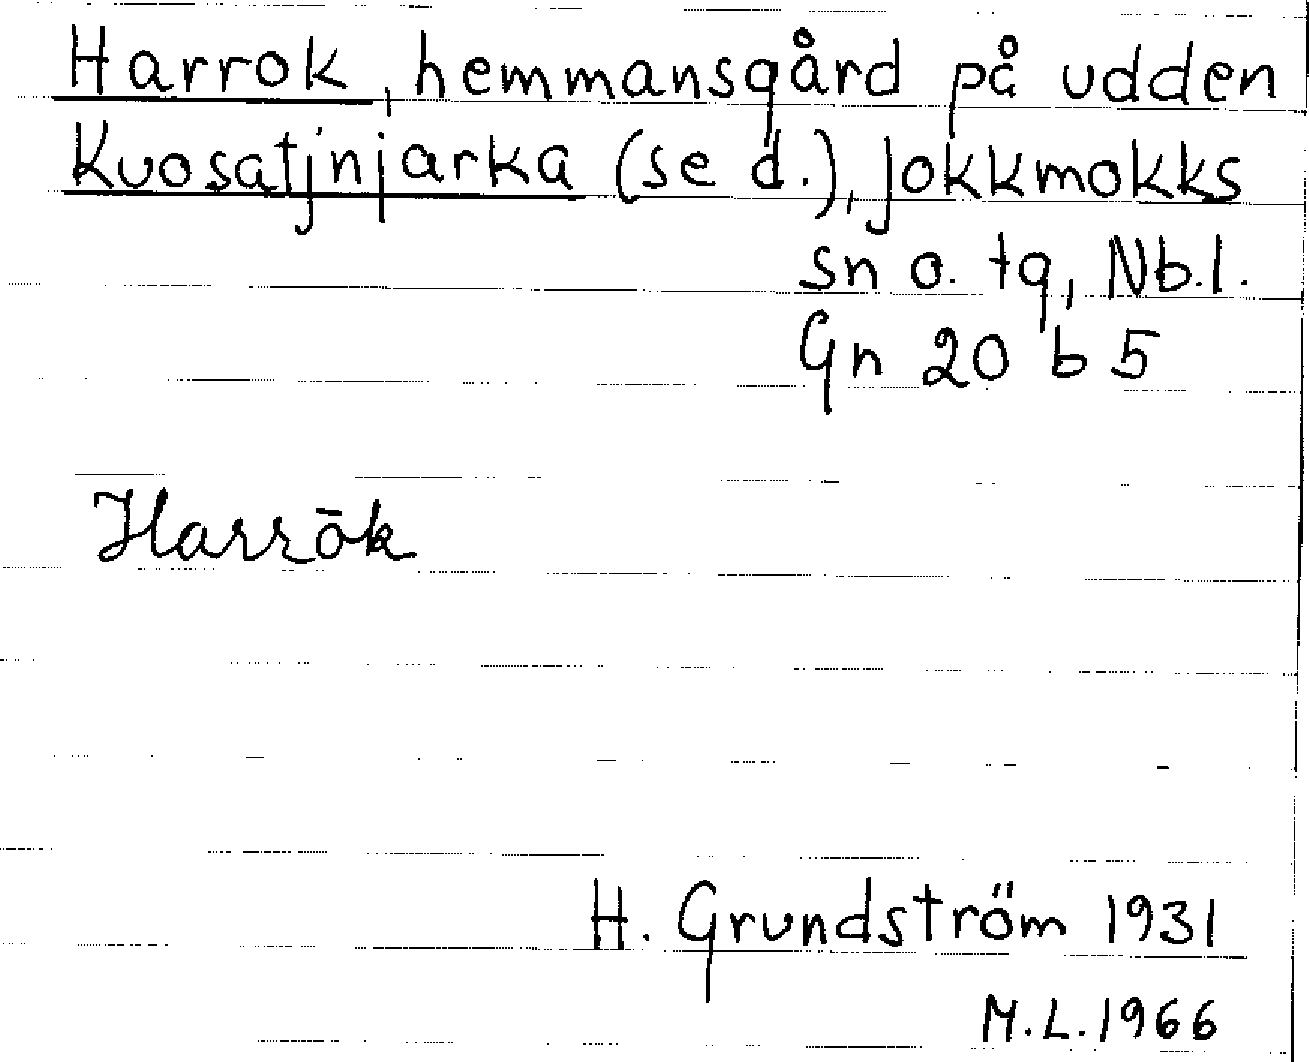 Harrok, hemmansgård på udden
Kuosatj'njarka (se d.), Jokkmokks
sn o. tg, Nb.l.
Gn 20 b 5
Harrōk
H. Grundström 1931
M.L. 1966